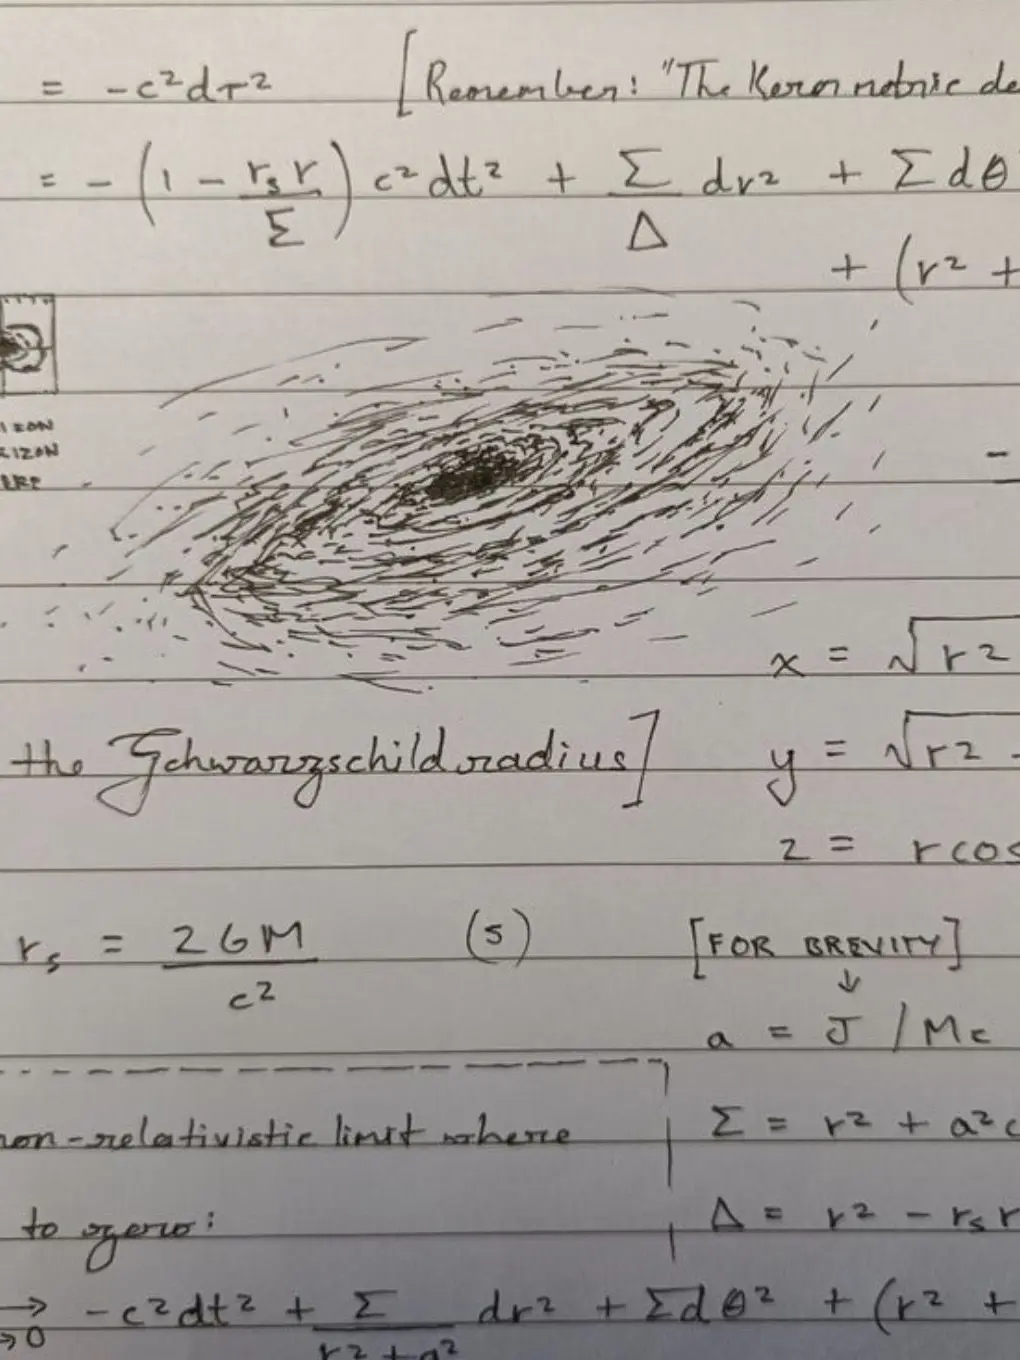 = -c²dτ² [Remember: "The Kerr metric de
= - (1 - rₛr/Σ) c²dt² + Σ/Δ dr² + Σdθ
+ (r² +
IZON
RIZON
ERE
-
x = √r²
the Schwarzschild radius]
y = √r² -
z = r cos
rₛ = 2GM/c² (5)
[FOR BREVITY]
↓
a = J / Mc
non-relativistic limit where
Σ = r² + a²c
to zero:
Δ = r² - rₛr
→ -c²dt² + Σ/r²+a² dr² + Σdθ² + (r² +
→0